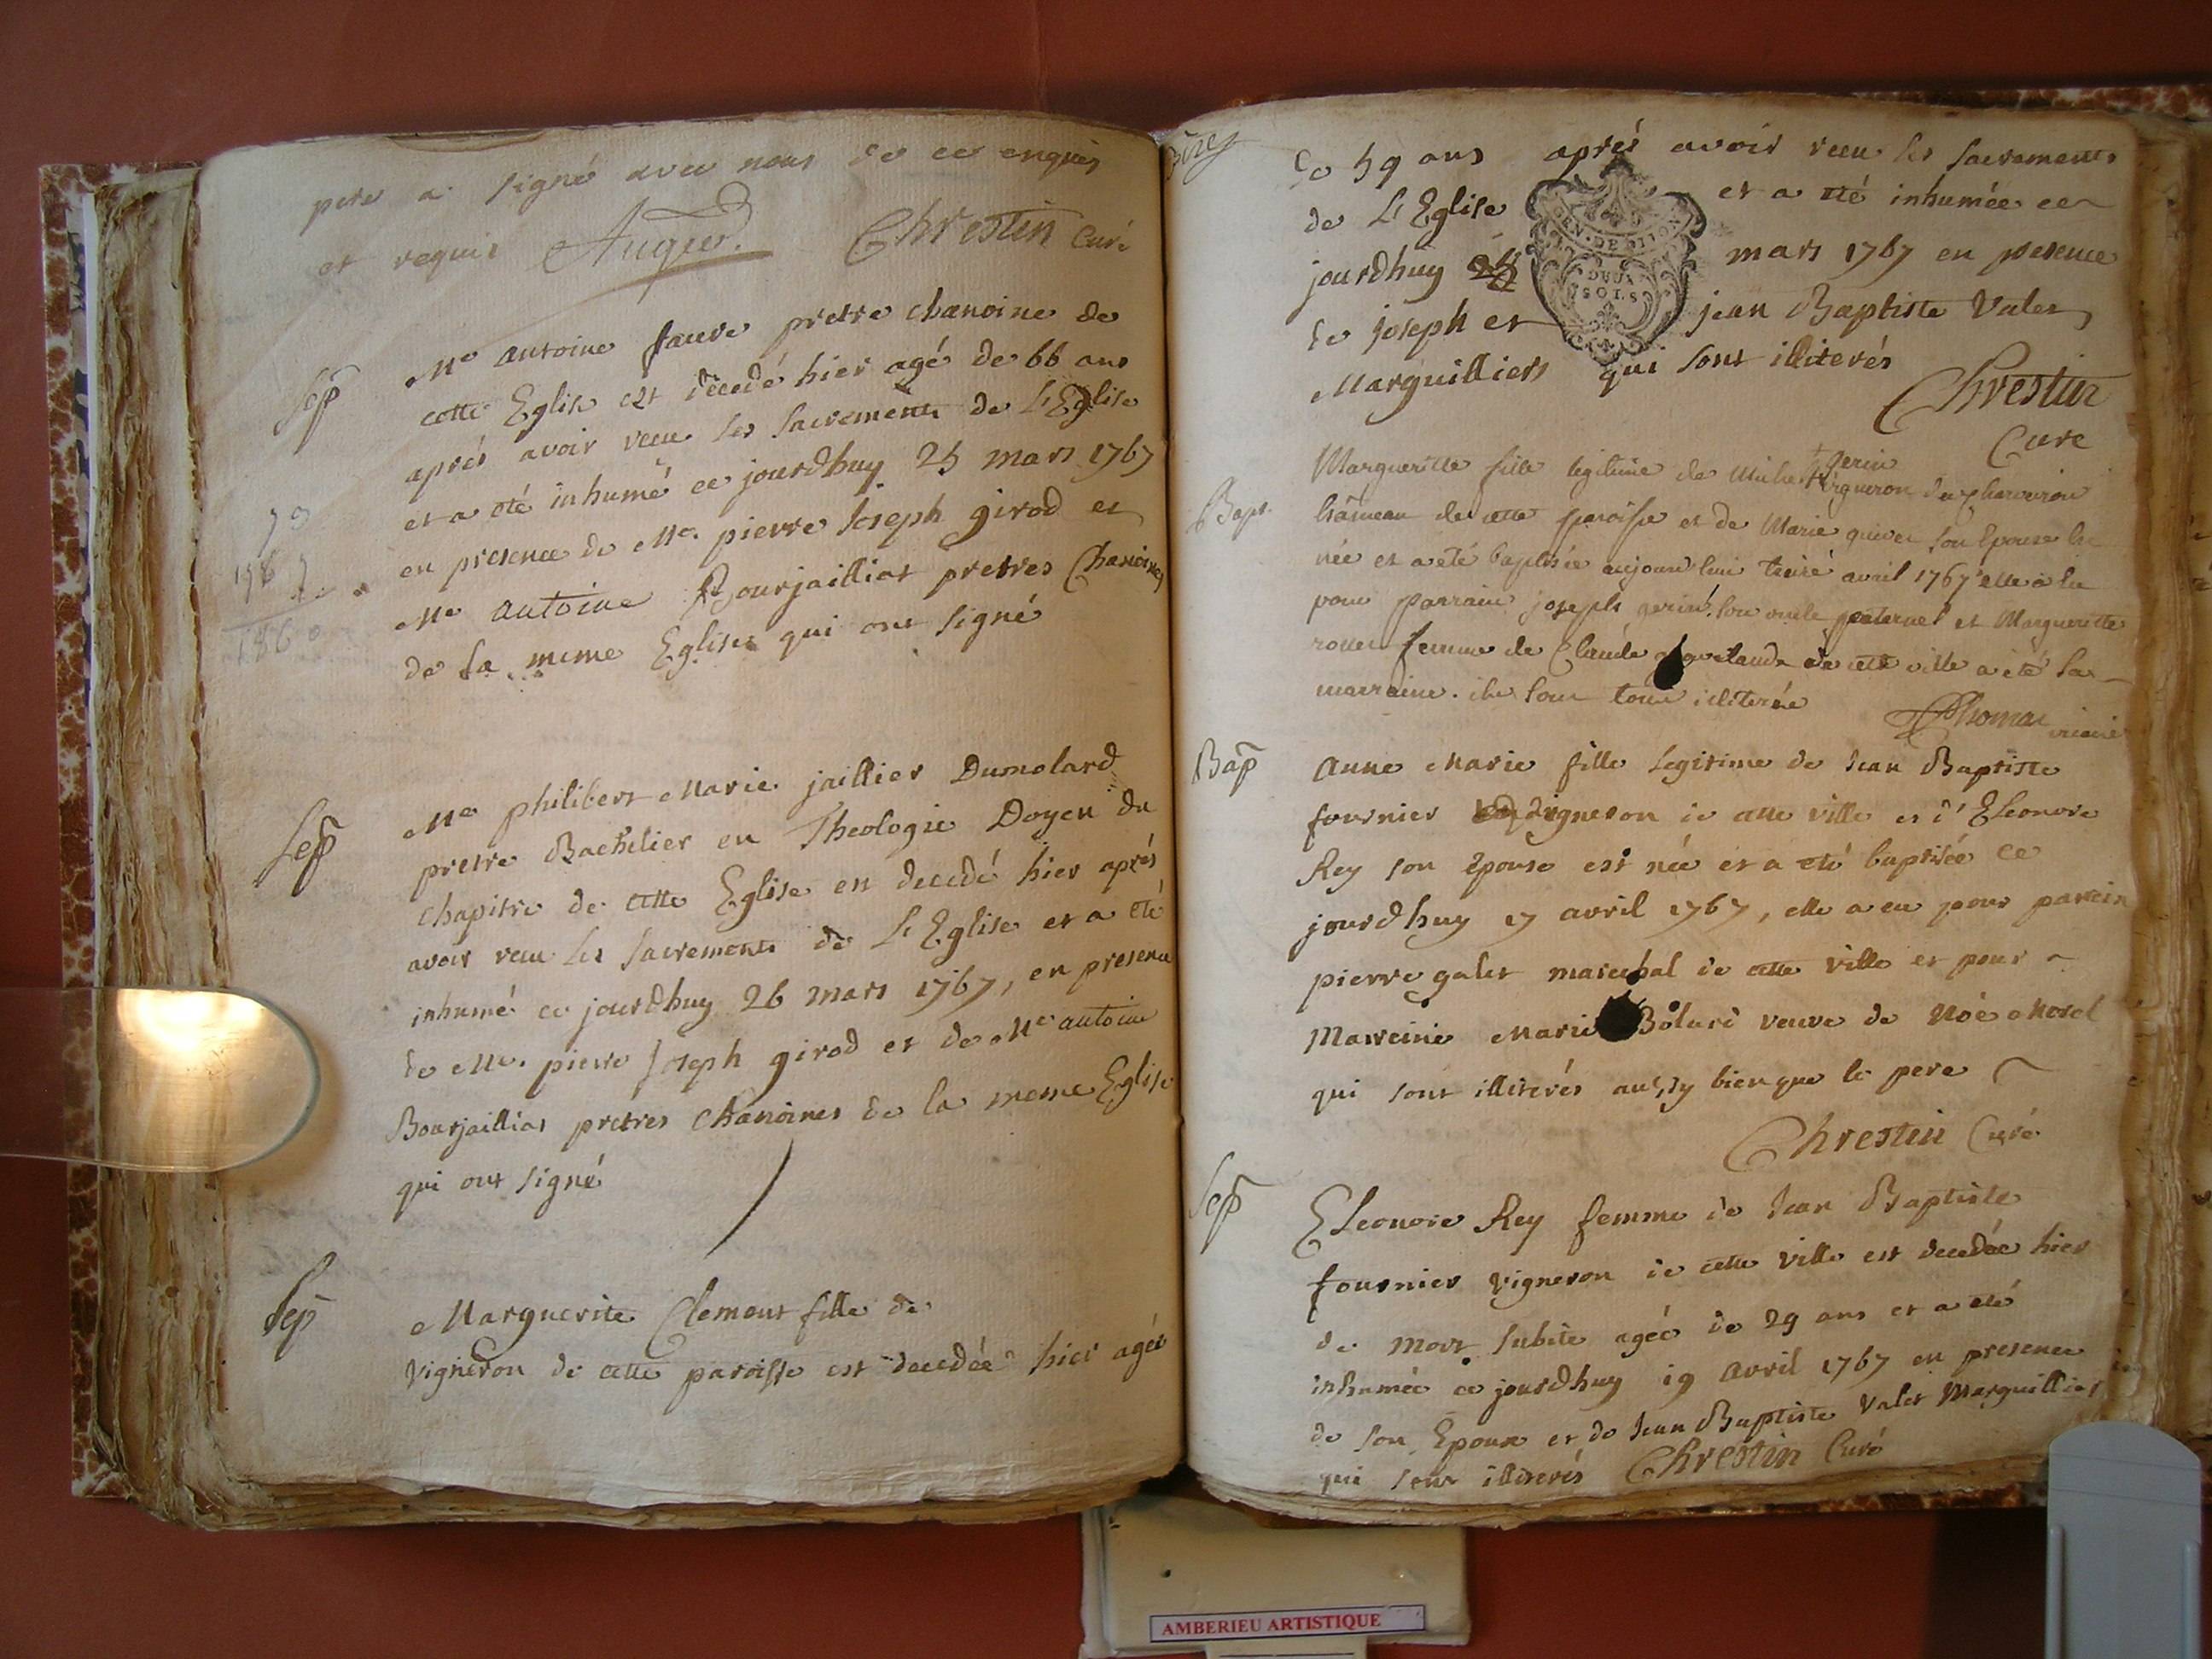 pere a signé avec nous de ce enquis
et requis Auger. Chrestin curé
Sep
Me antoine faure pretre chanoine de
cette Eglise est decedé hier agé de 66 ans
aprés avoir receu les sacrements de L'Eglise
et a oté inhumé ce jourdhuy 25 mars 1767
en presence de Me. pierre Joseph girod et
Me antoine Bourjailliat pretres Chanoines
de la meme Eglise qui ont signé
Sep
Me philibert Marie jaillier Dumolard
pretre Bachelier en Theologie Doyen du
chapitre de cette Eglise est decedé hier aprés
avoir receu les sacrements de L'Eglise et a eté
inhumé ce jourdhuy 26 mars 1767, en presence
de Me. pierre Joseph girod et de Me antoine
Bourjailliat prétres chanoines de la meme Eglise
qui ont signé
Sep
Marguerite Clement fille de
vigneron de cette paroisse est decedée hier agée
de 59 ans aprés avoir receu les sacrements
de L'Eglise et a eté inhumée ce
jourdhuy mars 1767 en presence
de joseph et jean Baptiste Valet
Marguilliers qui sont illiterés
GEN. DE DIJON
DEUX
SOLS
Chrestin
Curé
Bapt.
Margueritte fille legitime de gerin
vigneron de
hameau de cette paroisse et de Marie son Epouse
née et a eté baptisée aujourdhui treize avril 1767 elle a eu
pour parrain joseph gerin son oncle paternel et Marguerite
femme de Claude de cette ville a eté sa
marraine. ils sont tous illiterés
Thomas vicaire
Bap
Anne Marie fille legitime de Jean Baptiste
fournier vigneron de cette ville et d'Eleonore
Rey son epouse est née et a eté baptisée ce
jourdhuy 17 avril 1767, elle a eu pour parein
pierre galet marechal de cette ville et pour
Mareine Marie veuve de Noé Morel
qui sont illiterés aussy bien que le pere
Chrestin Curé
Sep
Eleonore Rey femme de Jean Baptiste
fournier vigneron de cette ville est decedée hier
de mort subite agée de 29 ans et a eté
inhumée ce jourdhuy 19 avril 1767 en presence
de son Epoux et de Jean Baptiste Valet Marguillier
qui sont illiterés Chrestin Curé
AMBERIEU ARTISTIQUE